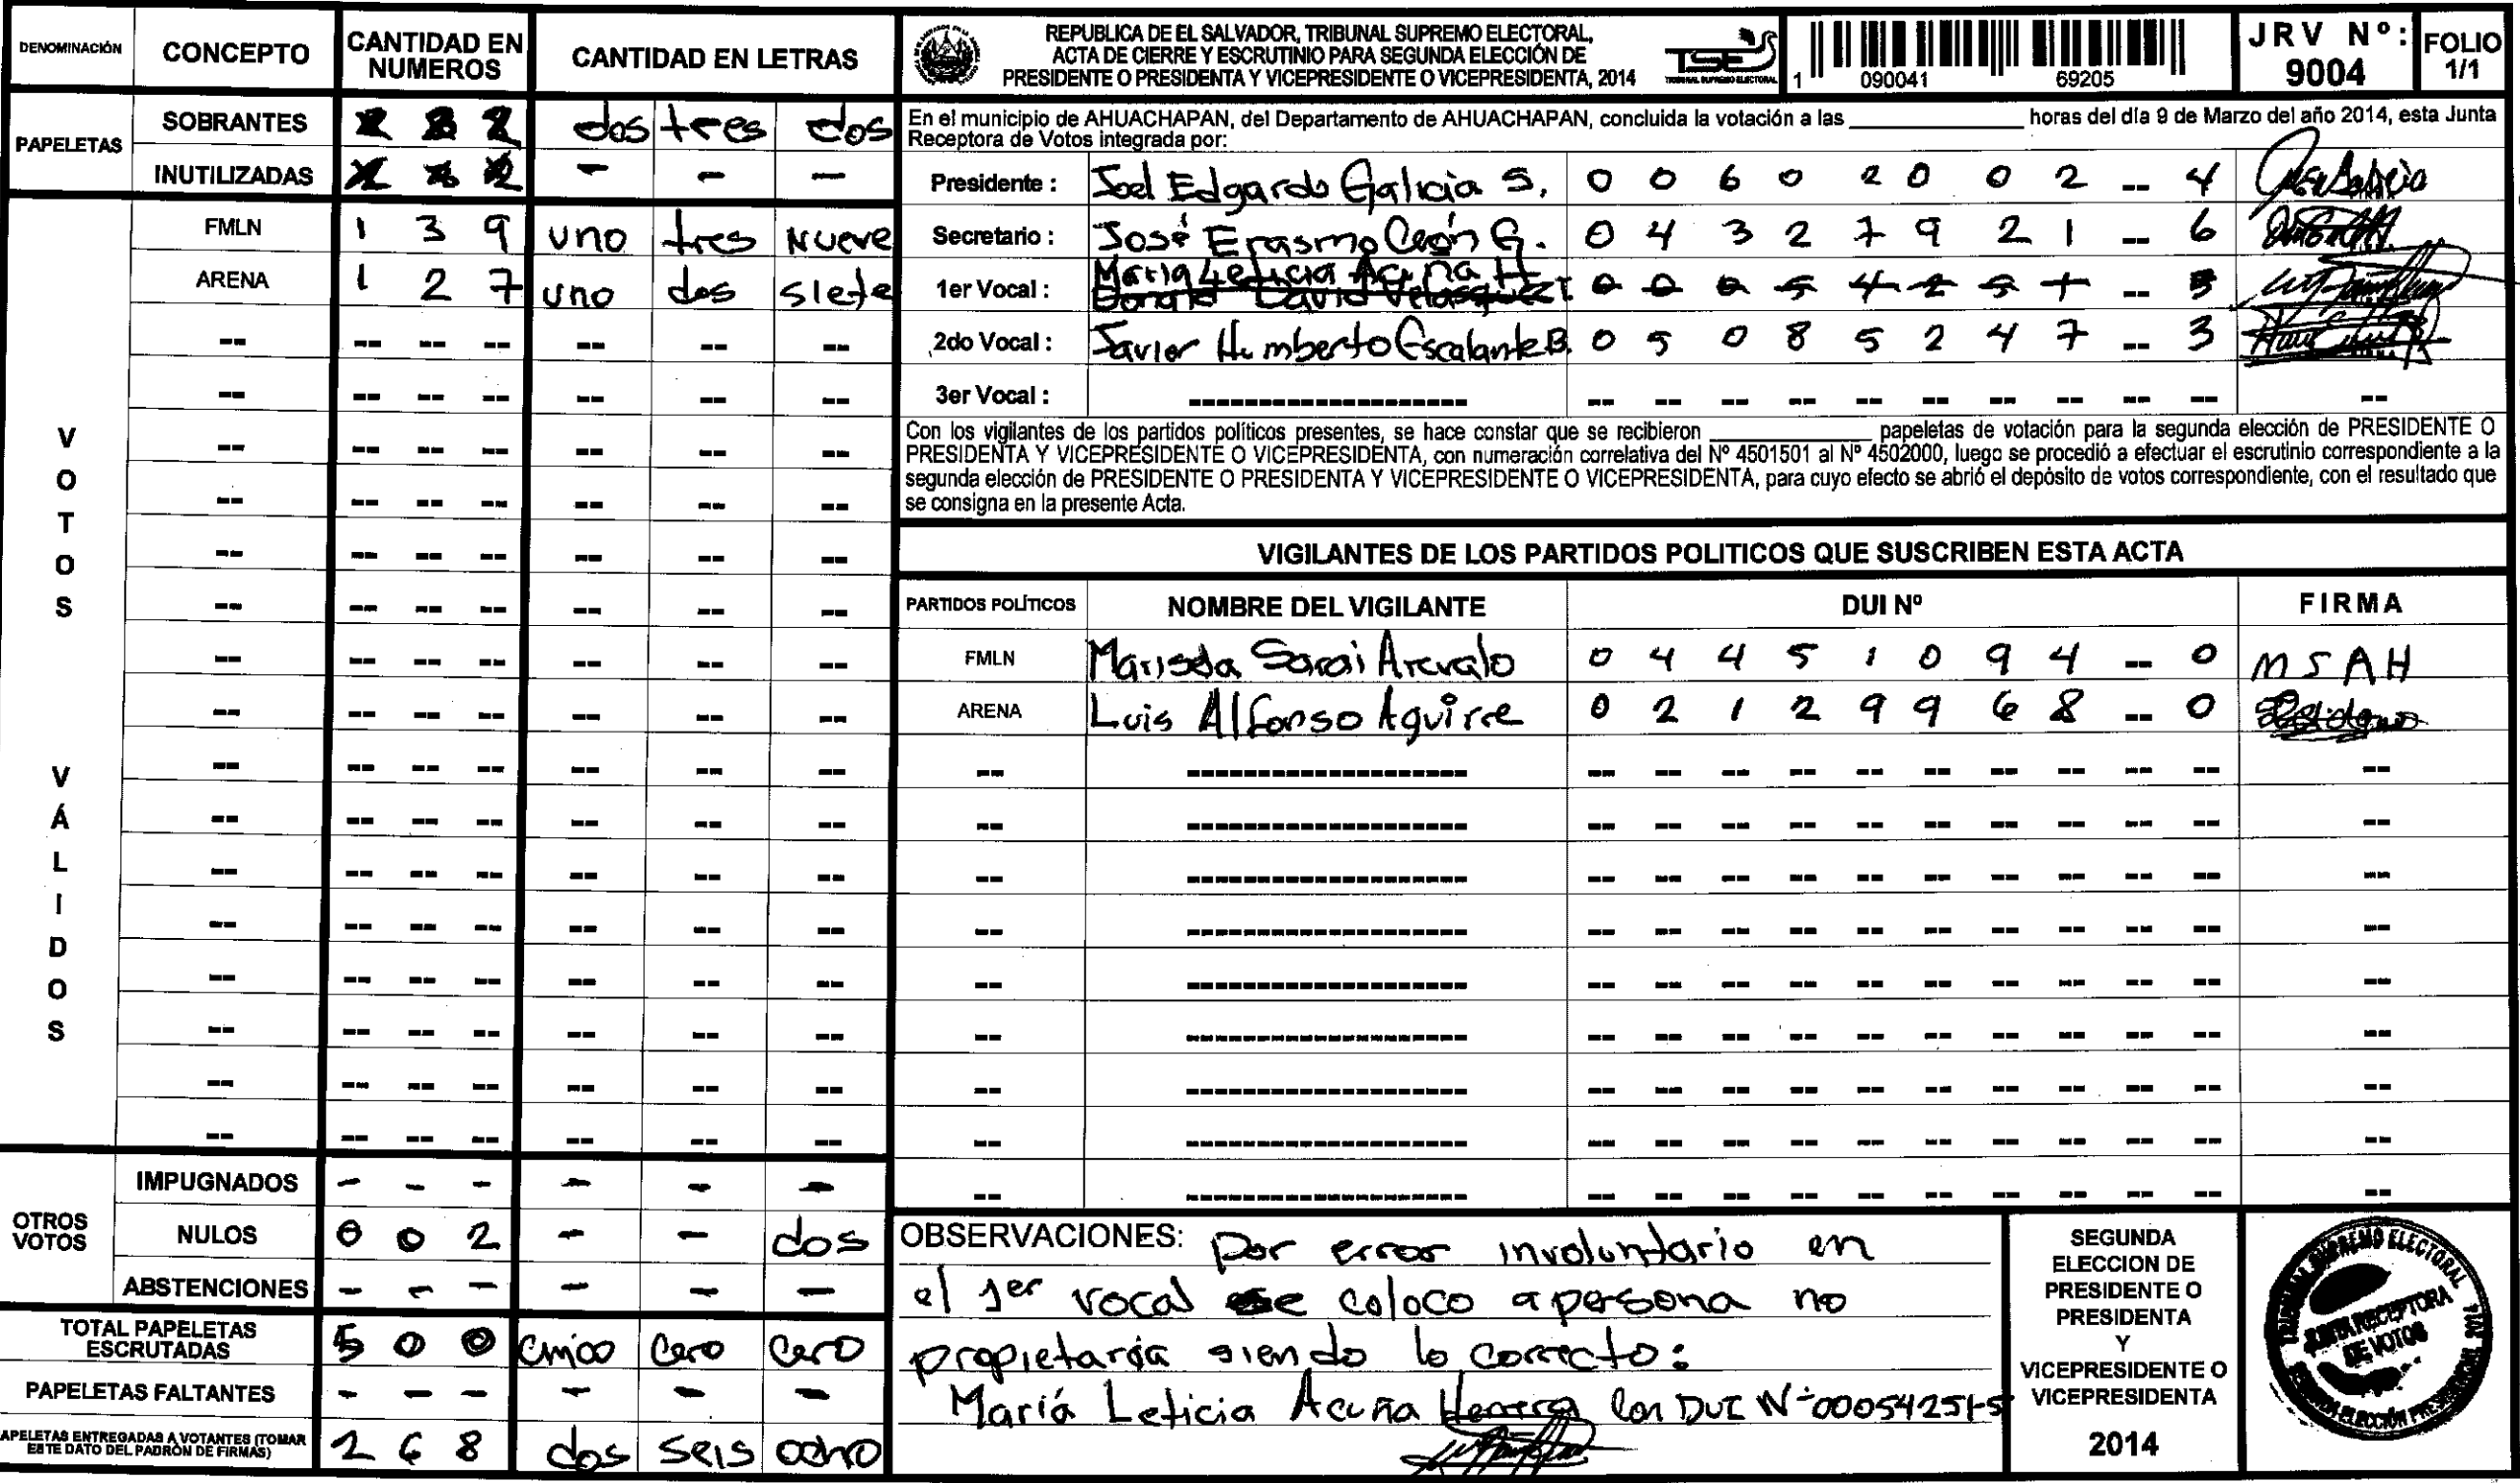 DENOMINACIÓN CONCEPTO CANTIDAD EN NUMEROS CANTIDAD EN LETRAS
PAPELETAS
SOBRANTES 2 3 2 dos tres dos
INUTILIZADAS - - -
VOTOS VÁLIDOS
FMLN 1 3 9 uno tres Nueve
ARENA 1 2 7 uno dos siete
OTROS VOTOS
IMPUGNADOS - - - - - -
NULOS 0 0 2 - - dos
ABSTENCIONES - - - - - -
TOTAL PAPELETAS ESCRUTADAS 5 0 0 cinco cero cero
PAPELETAS FALTANTES - - - - - -
APELETAS ENTREGADAS A VOTANTES (TOMAR ESTE DATO DEL PADRÓN DE FIRMAS) 2 6 8 dos seis ocho
REPUBLICA DE EL SALVADOR, TRIBUNAL SUPREMO ELECTORAL,
ACTA DE CIERRE Y ESCRUTINIO PARA SEGUNDA ELECCIÓN DE
PRESIDENTE O PRESIDENTA Y VICEPRESIDENTE O VICEPRESIDENTA, 2014
TSE
TRIBUNAL SUPREMO ELECTORAL
1 090041 69205
JRV Nº: 9004
FOLIO 1/1
En el municipio de AHUACHAPAN, del Departamento de AHUACHAPAN, concluida la votación a las ____ horas del día 9 de Marzo del año 2014, esta Junta
Receptora de Votos integrada por:
Presidente : Joel Edgardo Galicia S. 0 0 6 0 2 0 0 2 -- 4
Secretario : José Erasmo Ceón G. 0 4 3 2 7 9 2 1 -- 6
1er Vocal : Maria Leticia Acuña H
Donald David Velasquez 0 0 0 5 4 2 5 1 -- 5
2do Vocal : Javier Humberto Escalante B. 0 5 0 8 5 2 4 7 -- 3
3er Vocal :
Con los vigilantes de los partidos políticos presentes, se hace constar que se recibieron ____ papeletas de votación para la segunda elección de PRESIDENTE O
PRESIDENTA Y VICEPRESIDENTE O VICEPRESIDENTA, con numeración correlativa del Nº 4501501 al Nº 4502000, luego se procedió a efectuar el escrutinio correspondiente a la
segunda elección de PRESIDENTE O PRESIDENTA Y VICEPRESIDENTE O VICEPRESIDENTA, para cuyo efecto se abrió el depósito de votos correspondiente, con el resultado que
se consigna en la presente Acta.
VIGILANTES DE LOS PARTIDOS POLITICOS QUE SUSCRIBEN ESTA ACTA
PARTIDOS POLÍTICOS NOMBRE DEL VIGILANTE DUI Nº FIRMA
FMLN Marisela Sarai Arevalo 0 4 4 5 1 0 9 4 -- 0 MSAH
ARENA Luis Alfonso Aguirre 0 2 1 2 9 9 6 8 -- 0
OBSERVACIONES: por error involuntario en
el 1er vocal se coloco a persona no
propietaria siendo lo correcto:
María Leticia Acuña Herrera con DUI Nº 00054251-5
SEGUNDA
ELECCION DE
PRESIDENTE O
PRESIDENTA
Y
VICEPRESIDENTE O
VICEPRESIDENTA
2014
TRIBUNAL SUPREMO ELECTORAL
JUNTA RECEPTORA
DE VOTOS